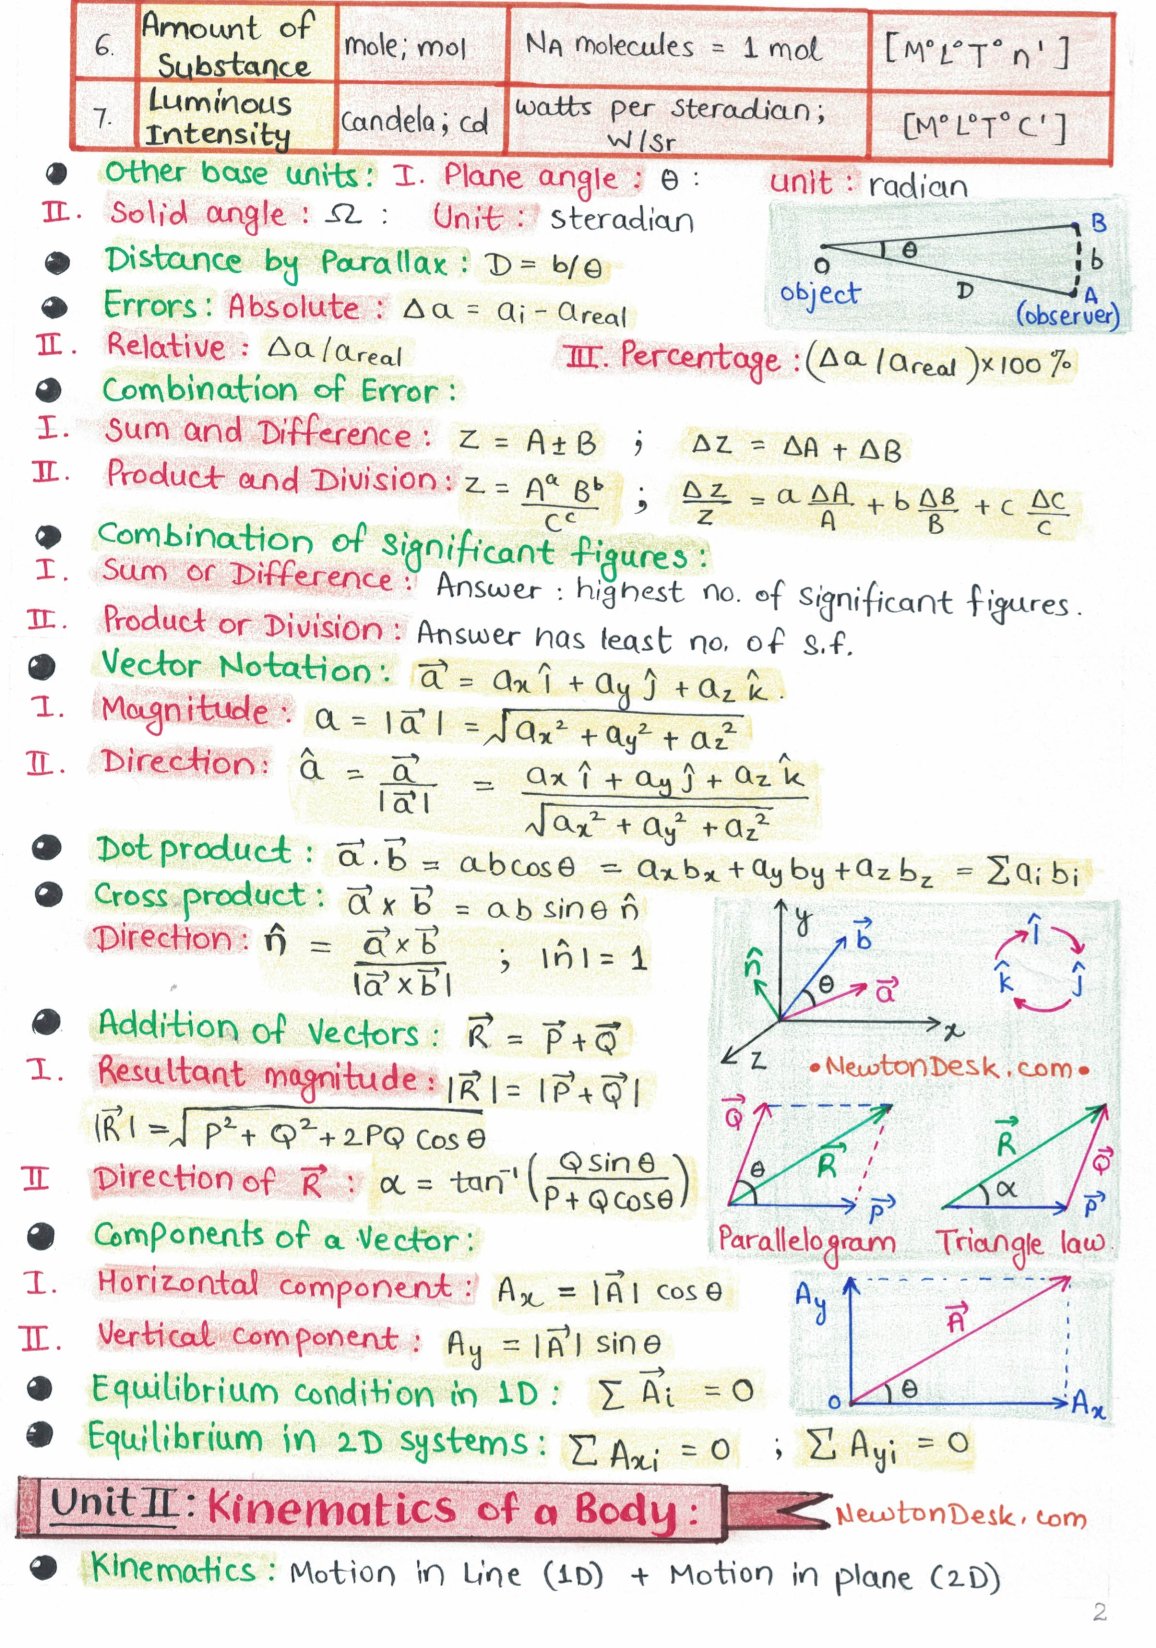 6. Amount of Substance mole; mol NA molecules = 1 mol [M⁰L⁰T⁰n¹]
7. Luminous Intensity candela; cd watts per steradian; W/Sr [M⁰L⁰T⁰C¹]
Other base units: I. Plane angle: θ: unit: radian
II. Solid angle: Ω: Unit: steradian
Distance by Parallax: D = b/θ
O θ B b A D
object (observer)
Errors: Absolute: Δa = ai - areal
II. Relative: Δa/areal III. Percentage: (Δa/areal)×100%
Combination of Error:
I. Sum and Difference: Z = A±B ; ΔZ = ΔA + ΔB
II. Product and Division: Z = A^a B^b / C^c ; ΔZ/Z = a ΔA/A + b ΔB/B + c ΔC/C
Combination of significant figures:
I. Sum or Difference: Answer: highest no. of significant figures.
II. Product or Division: Answer has least no. of s.f.
Vector Notation: a⃗ = ax î + ay ĵ + az k̂.
I. Magnitude: a = |a⃗| = √(ax² + ay² + az²)
II. Direction: â = a⃗/|a⃗| = (ax î + ay ĵ + az k̂)/√(ax² + ay² + az²)
Dot product: a⃗.b⃗ = abcosθ = axbx + ayby + azbz = Σaibi
Cross product: a⃗ × b⃗ = ab sinθ n̂
Direction: n̂ = (a⃗×b⃗)/|a⃗×b⃗| ; |n̂| = 1
y b⃗ n̂ θ a⃗ x z
î ĵ k̂
•NewtonDesk.com•
Addition of Vectors: R⃗ = P⃗+Q⃗
I. Resultant magnitude: |R⃗| = |P⃗+Q⃗|
|R⃗| = √(P² + Q² + 2PQ cosθ)
II Direction of R⃗: α = tan⁻¹(Qsinθ/(P+Qcosθ))
Q⃗ θ R⃗ P⃗
R⃗ Q⃗ α P⃗
Parallelogram Triangle law
Components of a Vector:
I. Horizontal component: Ax = |A⃗| cosθ
II. Vertical component: Ay = |A⃗| sinθ
Ay A⃗ θ O Ax
Equilibrium condition in 1D: Σ A⃗i = 0
Equilibrium in 2D systems: Σ Axi = 0 ; Σ Ayi = 0
Unit II: Kinematics of a Body:
NewtonDesk.com
Kinematics: Motion in Line (1D) + Motion in plane (2D)
2